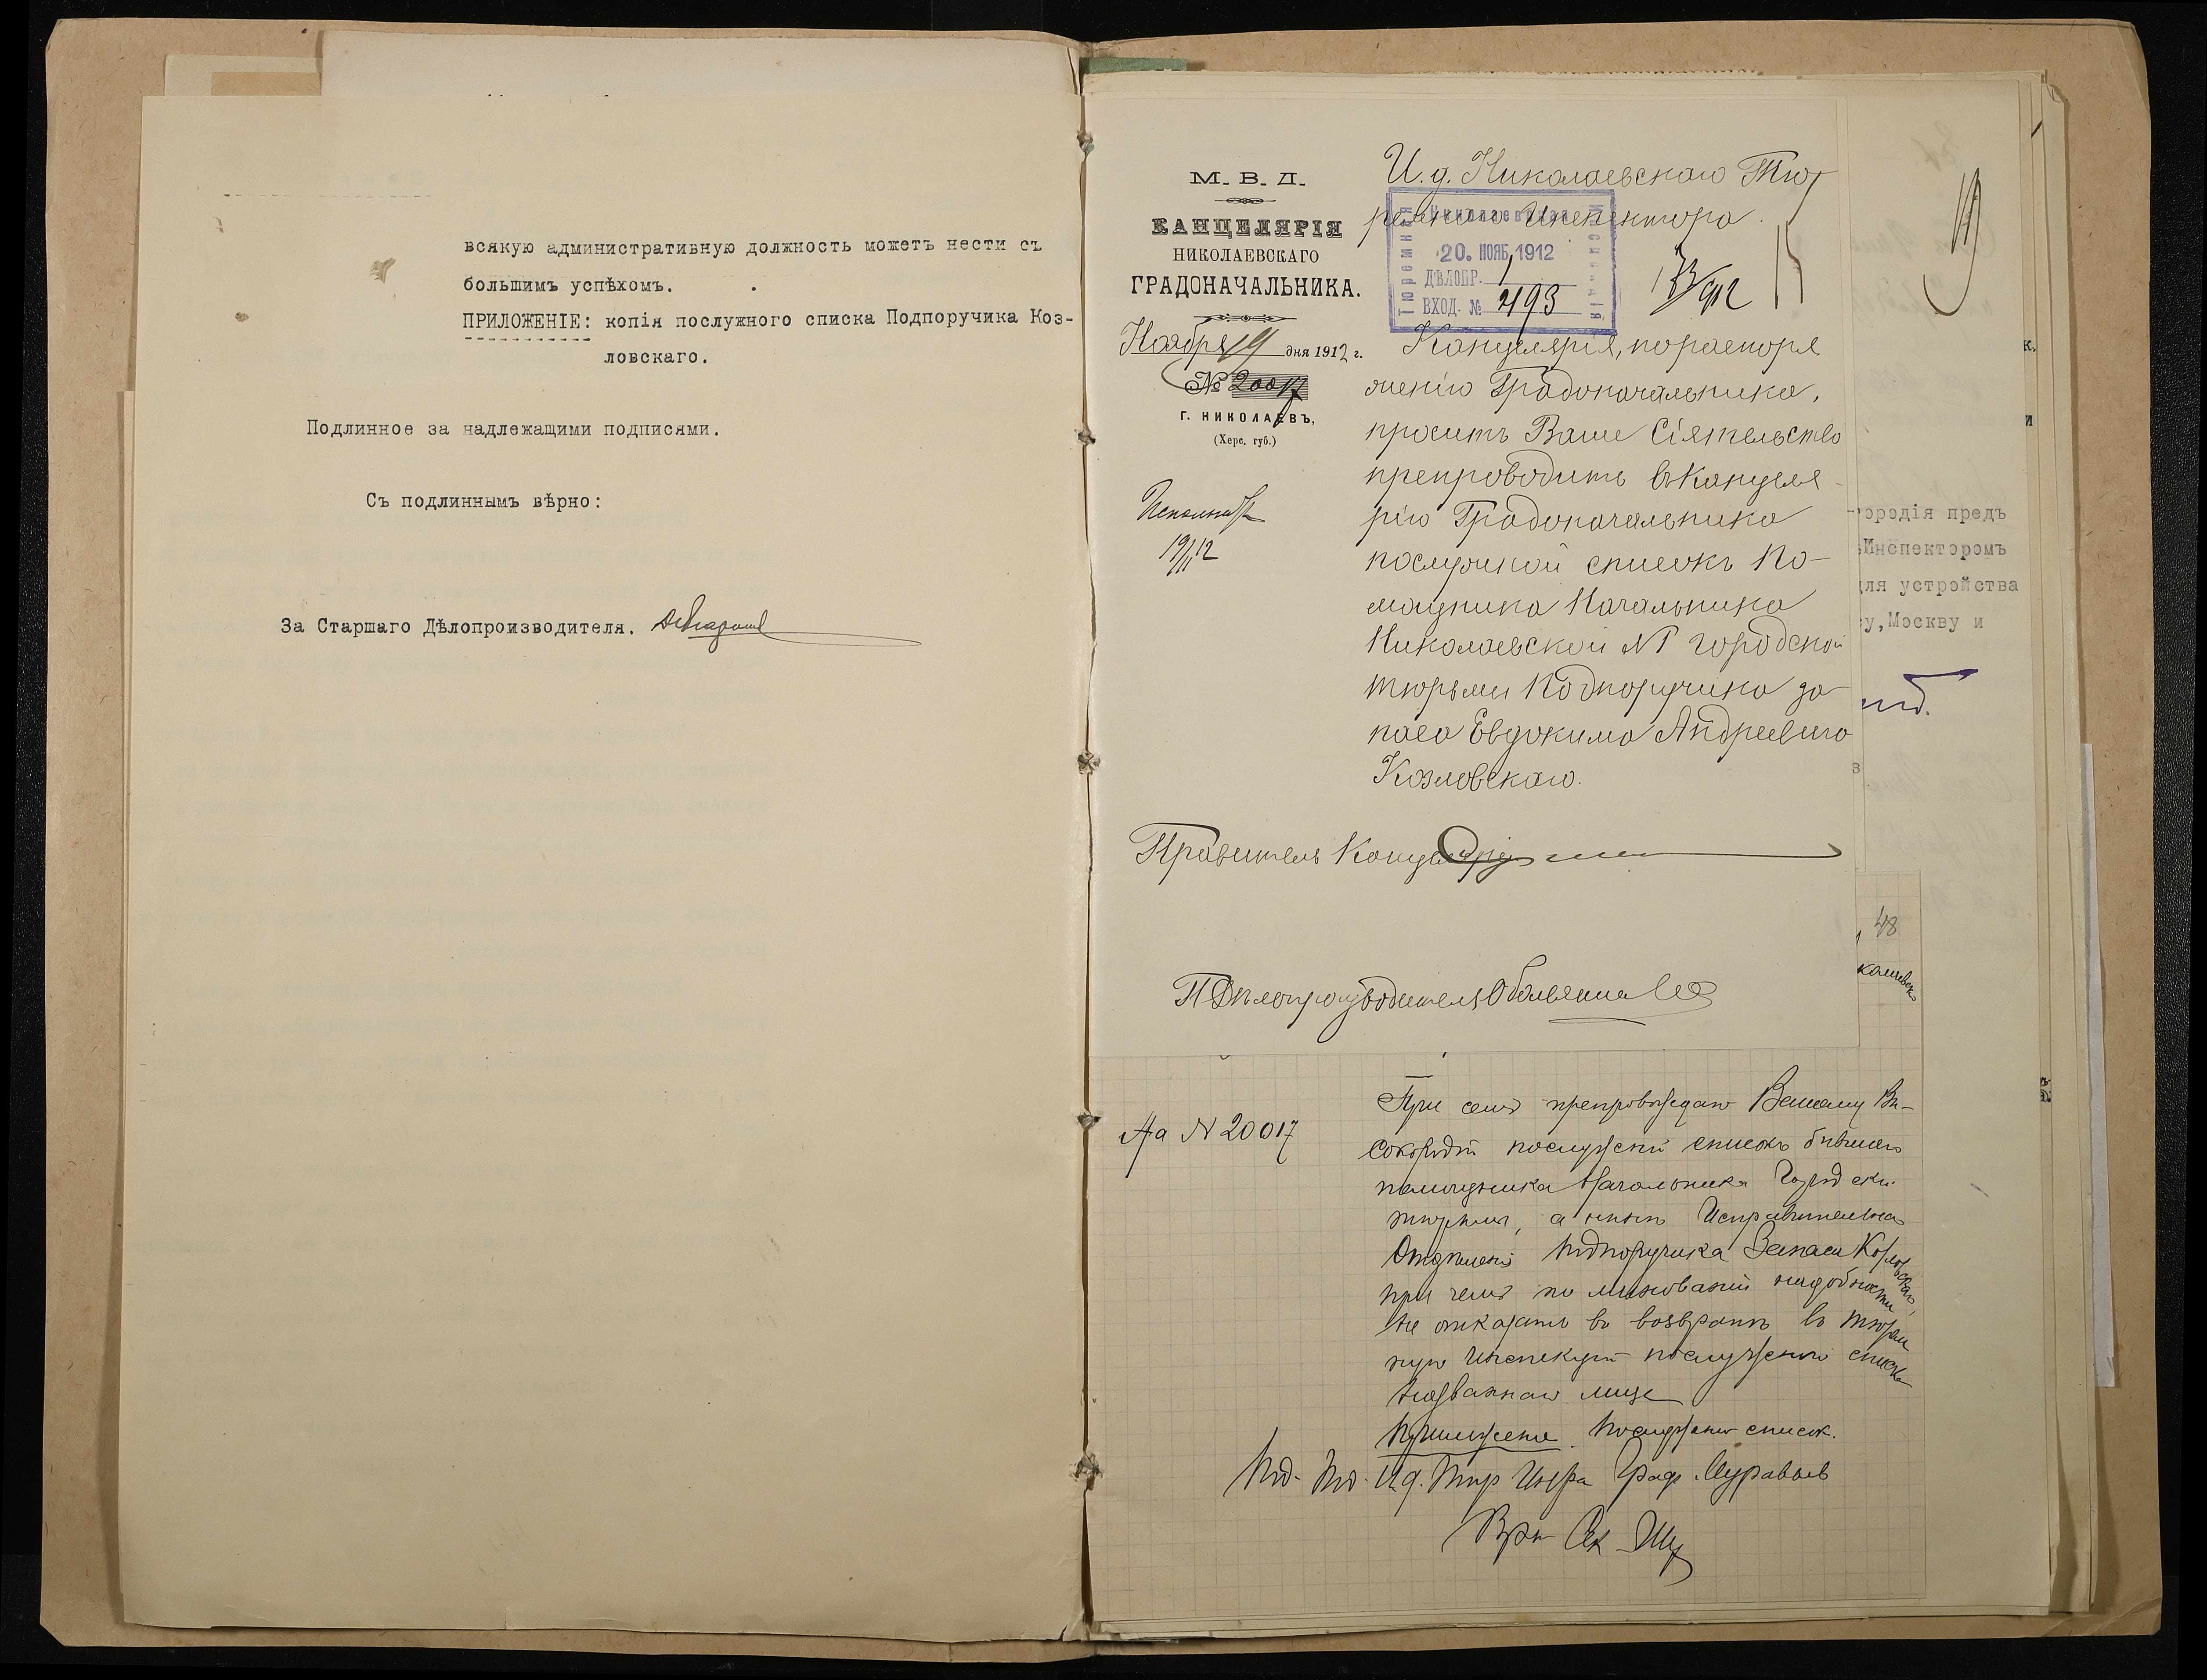 всякую административную должность можетъ нести съ
большимъ успѣхомъ.
ПРИЛОЖЕНІЕ: копія послужного списка Подпоручика Коз-
ловскаго.
Подлинное за надлежащими подписями.
Съ подлиннымъ вѣрно:
За Старшаго Дѣлопроизводителя.
М. В. Д.
КАНЦЕЛЯРІЯ
НИКОЛАЕВСКАГО
ГРАДОНАЧАЛЬНИКА.
Ноября 19 дня 1912 г.
№ 20017
Г. НИКОЛАЕВЪ,
(Херс. губ.)
19/11 12
И. д. Николаевскаго Тю
ремнаго Инспектора.
Николаевская
Тюремная
Инспекція
20. НОЯБ. 1912
ДѢЛОПР. 1
ВХОД. № 493
Канцелярія, по распоря
женію Градоначальника,
проситъ Ваше Сіятельство
препроводить въ Канцеля-
рію Градоначальника
послужной списокъ По-
мощника Начальника
Николаевской № 1 городской
тюрьмы Подпоручика за-
паса Евдокима Андреевича
Козловскаго.
Правитель Канцеляріи
Дѣлопроизводитель
-городія предъ
Инспекторомъ
для устройства
у, Москву и
48
На № 20017
При семъ препровождаю Вашему Вы-
сокородію послужной списокъ бывшаго
помощника Начальника Городской
тюрьмы, а нынѣ Исправительнаго
Отдѣленія Подпоручика Запаса Козловскаго,
при чемъ по минованіи надобности
не отказать въ возвратѣ въ Тюрем
ную Инспекцію послужного списка
названнаго лица
Приложеніе. Послужной список.
Под. Под. И. д. Тюр Инспра Граф. Муравьев